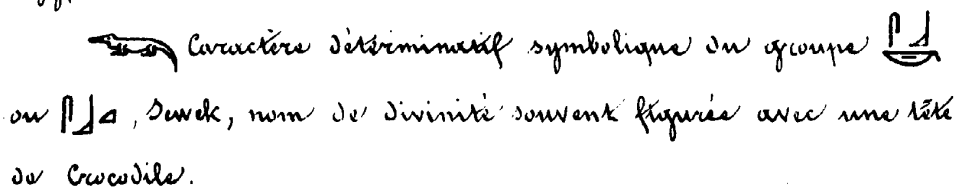 𓆊 Caractère déterminatif symbolique du groupe 𓋴𓃀𓎡
ou 𓋴𓃀𓈎, Sewek, nom de divinité souvent figurée avec une tête
de Crocodile.